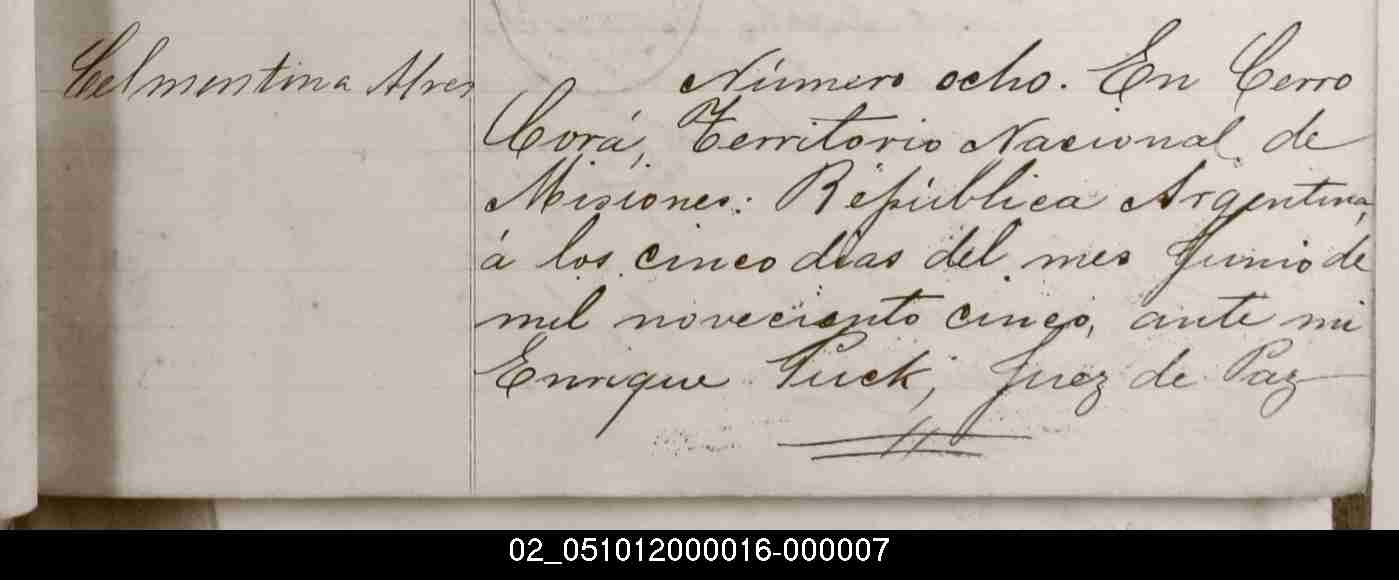 Celmentina Alves
Número ocho. En Cerro
Corá, Territorio Nacional de
Misiones: República Argentina,
á los cinco dias del mes Junio de
mil noveciento cinco, ante mi
Enrique Puck, Juez de Paz
02_051012000016-000007